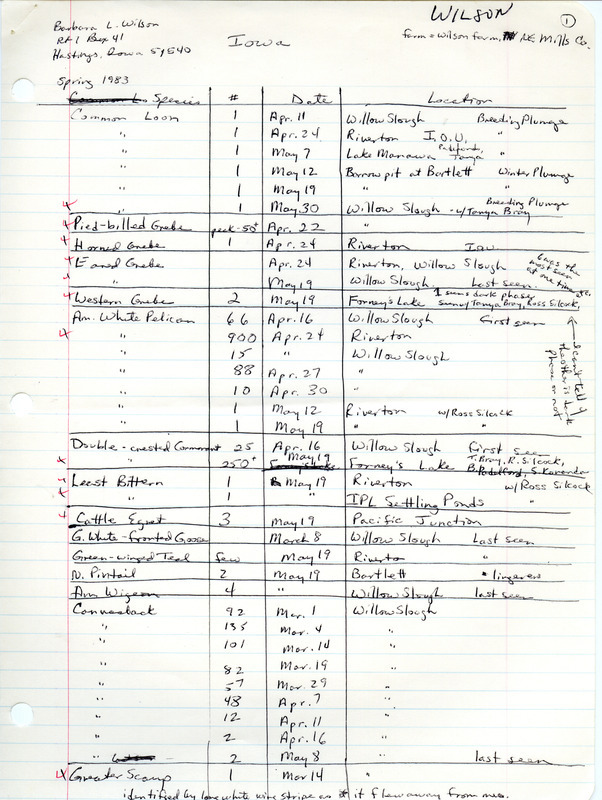 WILSON
1
Barbara L. Wilson
RR 1 Box 41
Hastings, Iowa 51540
Iowa
farm = Wilson farm, NE Mills Co.
Spring 1983
Species # Date Location
Common Loon 1 Apr. 11 Willow Slough Breeding Plumage
" 1 Apr. 24 Riverton I.O.U. "
" 1 May 7 Lake Manawa Padelford, Tanya
" 1 May 12 Borrow pit at Bartlett Winter Plumage
" 1 May 19 " "
4 " 1 May 30 Willow Slough - w/Tanya Bray Breeding Plumage
4 Pied-billed Grebe peak-50+ Apr. 22 "
4 Horned Grebe 1 Apr. 24 Riverton IOU
4 Eared Grebe Apr. 24 Riverton, Willow Slough 6 was the most seen at one time
" May 19 Willow Slough Last seen.
4 Western Grebe 2 May 19 Forney's Lake 1 seen dark phase seen w/ Tanya Bray, Ross Silcock,
I can't tell if the other is dark phase or not
Am. White Pelican 66 Apr. 16 Willow Slough First seen
4 " 900 Apr. 24 Riverton
" 15 " Willow Slough
" 88 Apr. 27 "
" 10 Apr. 30 "
" 1 May 12 Riverton w/Ross Silcock
" 1 May 19 " "
Double-crested Cormorant 25 Apr. 16 Willow Slough First seen
4 " 250+ May 19 Forney's Lake T. Bray, R. Silcock, B. Padelford, S. Kovanda
4 Least Bittern 1 May 19 Riverton w/ Ross Silcock
4 " 1 " IPL Settling Ponds "
4 Cattle Egret 3 May 19 Pacific Junction
G. White-fronted Goose March 8 Willow Slough Last seen
Green-winged Teal few May 19 Riverton "
N. Pintail 2 May 19 Bartlett lingerers
Am Wigeon 4 " Willow Slough last seen
Canvasback 92 Mar. 1 Willow Slough
" 135 Mar. 4 "
" 101 Mar. 14 "
" 82 Mar. 19 "
" 57 Mar. 29 "
" 48 Apr. 7 "
" 12 Apr. 11 "
" 2 Apr. 16 "
" 2 May 8 " last seen
4 Greater Scaup 1 Mar 14 "
identified by long white wing stripe as it flew away from me.